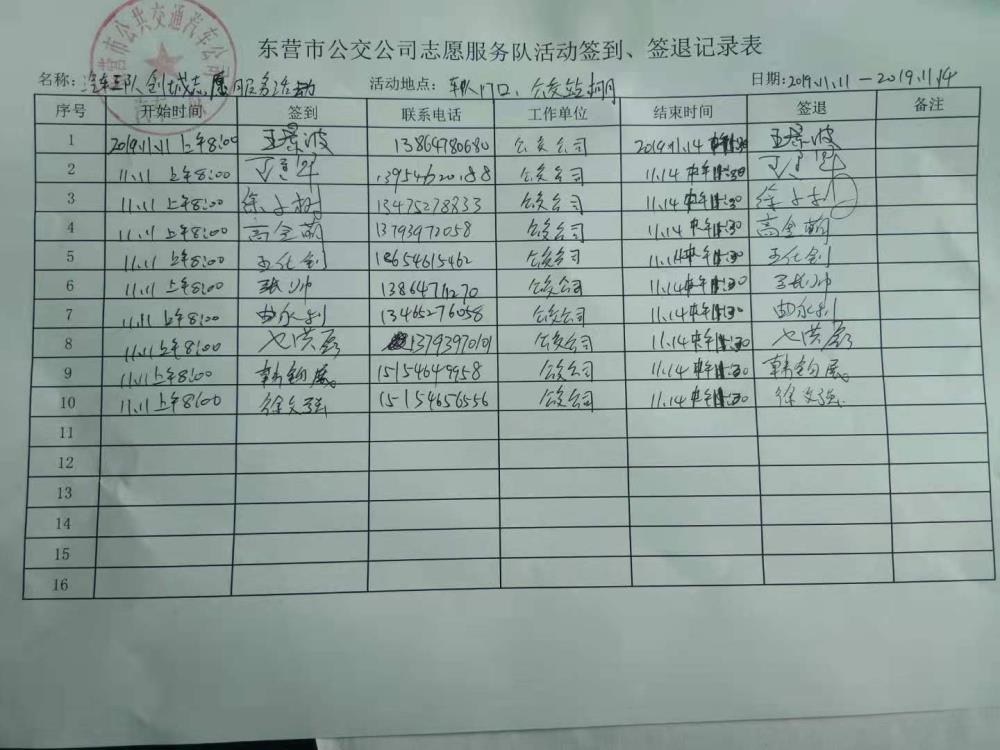 东营市公共交通汽车公司
东营市公交公司志愿服务队活动签到、签退记录表
名称: 汽车三队创城志愿服务活动 活动地点: 车队门口、公交站棚 日期: 2019.11.11—2019.11.14
序号 开始时间 签到 联系电话 工作单位 结束时间 签退 备注
1 2019.11.11 上午8:00 王景波 13864780680 公交公司 2019.11.14 王景波
2 11.11 上午8:00 13954620188 公交公司 11.14
3 11.11 上午8:00 徐子树 13475278833 公交公司 11.14 徐子树
4 11.11 上午8:00 高金萌 13793972058 公交公司 11.14 高金萌
5 11.11 上午8:00 王化剑 18654615462 公交公司 11.14 王化剑
6 11.11 上午8:00 张帅 13864711270 公交公司 11.14 张帅
7 11.11 上午8:00 曲永利 13465276058 公交公司 11.14 曲永利
8 11.11 上午8:00 13793970101 公交公司 11.14
9 11.11 上午8:00 15154649958 公交公司 11.14
10 11.11 上午8:00 徐文强 15154656556 公交公司 11.14 徐文强
11
12
13
14
15
16